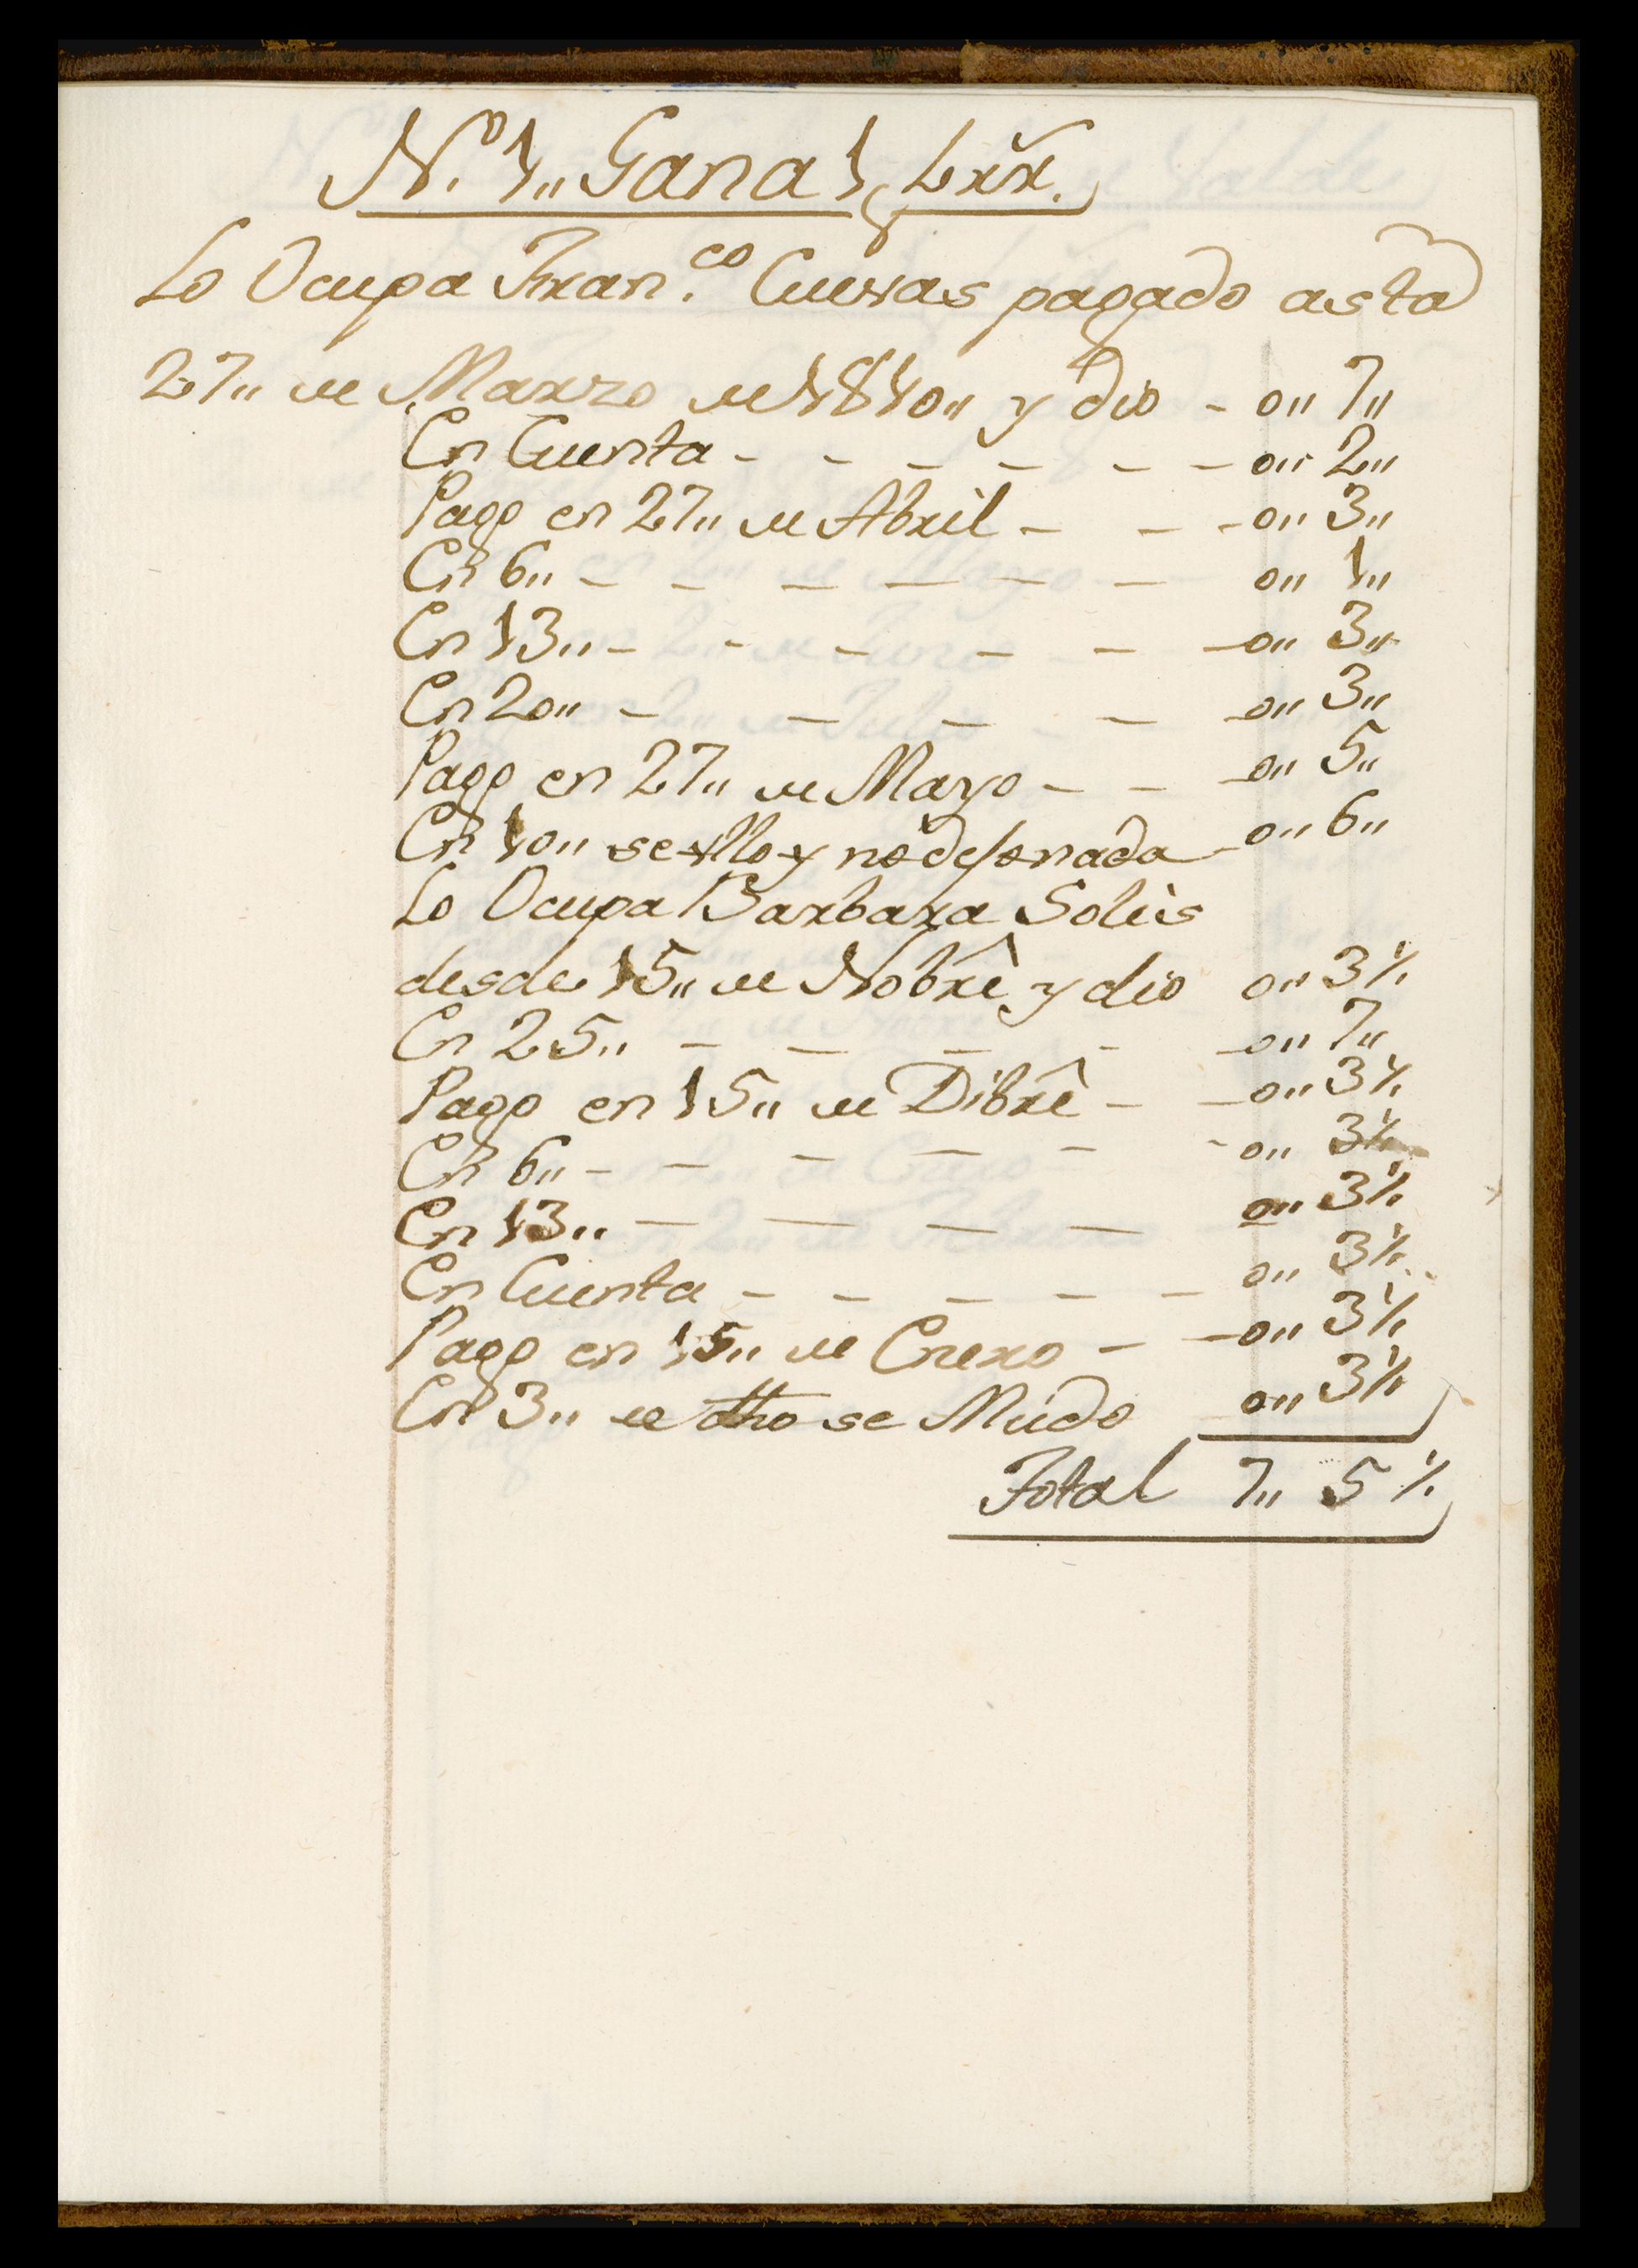 N.º 1„ Gana 1„ Lxx.
Lo Ocupa Fran.co Cuevas pagado asta
27„ de Marzo de 1810„ y dio - 0„ 7„
En Cuenta - - - - - - 0„ 2„
Pago en 27„ de Abril - - - 0„ 3„
En 6„ - - - - - - 0„ 1„
En 13„ - - - - - - 0„ 3„
En 20„ - - - - - 0„ 3„
Pago en 27„ de Mayo - - - 0„ 5„
En 10„ se llo y nó nada 0„ 6„
Lo Ocupa Barbara Solis
desde 15„ de Nobrê y dio 0„ 3½
En 25„ - - - - - 0„ 7„
Pago en 15„ de Dibrê - - 0„ 3½
En 6„ - - - - - - 0„ 3½
En 13„ - - - - 0„ 3½
En Cuenta - - - - - 0„ 3½
Pago en 15„ de Enero - - 0„ 3½
En 3„ de dho se Mudo 0„ 3½
Total 7„ 5½